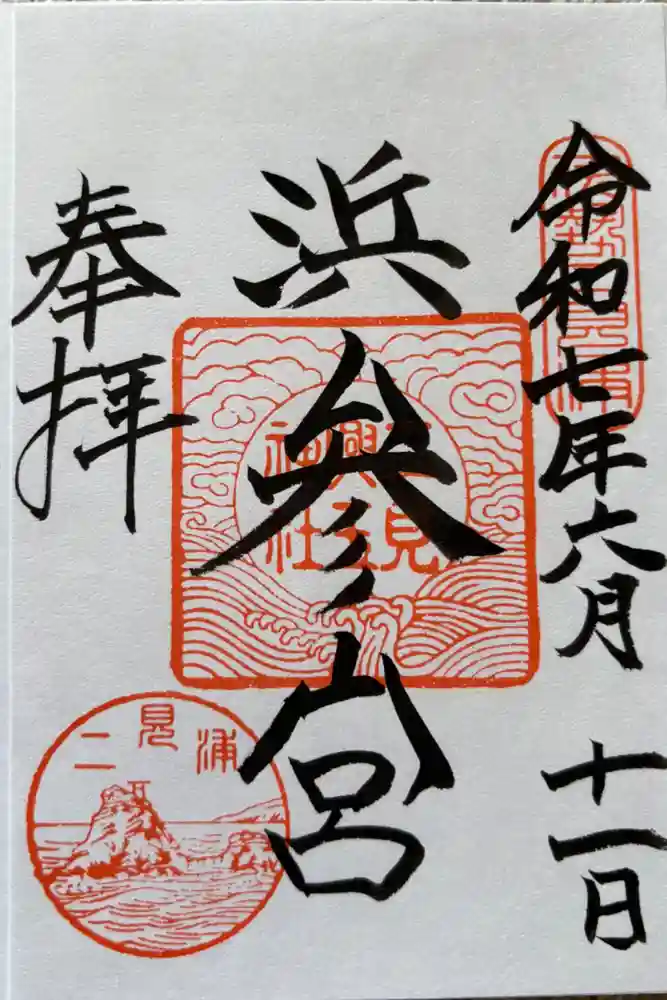 令和七年六月十一日
伊勢二見浦
浜参宮
二見興玉神社
奉拝
二見浦